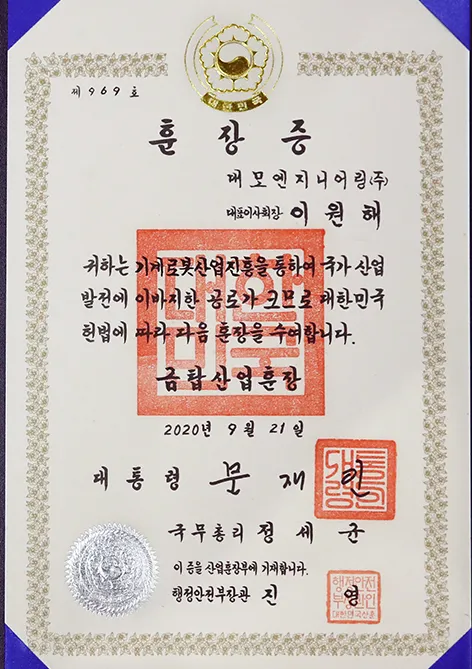 대한민국
제 969 호
훈장증
대모엔지니어링(주)
대표이사회장 이원해
귀하는 기계로봇산업진흥을 통하여 국가 산업
발전에 이바지한 공로가 크므로 대한민국
헌법에 따라 다음 훈장을 수여합니다.
금탑산업훈장
2020년 9월 21일
대통령 문재인
국무총리 정세균
이 증을 산업훈장부에 기재합니다.
행정안전부장관 진영